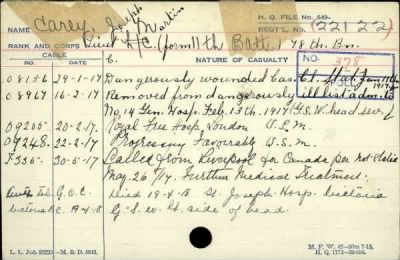 H. Q. FILE No. 649-
NAME Carey, Joseph Martin
REGT'L. No. (22122)
RANK AND CORPS Lieut. (form 11th Batt.) 78th Bn.
CABLE
NATURE OF CASUALTY
NO.
DATE
C.
NO. 378
08156 29-1-17 Dangerously wounded Cas. Cl. Stat. Jan. 11th 1917
08967 16-2-17 Removed from dangerously ill list admit to
No, 14 Gen. Hosp. Feb. 13th. 1917 (G.S.W. head sev.)
09205 20-2-17 Royal Free Hosp. London
09248 22-2-17 Progressing Favorably
30-5-17 Called from Liverpool for Canada per
May 26/17. Further Medical Treatment.
G.O.C. Died 19-4-18 St. Joseph Hosp. Victoria
B.C. 19-4-18 G.S.W. side of head.
L. L. Job 82225-M. & D. 5942.
M. F. W. 42-50m 7-15.
H. Q. 1772-39-893.